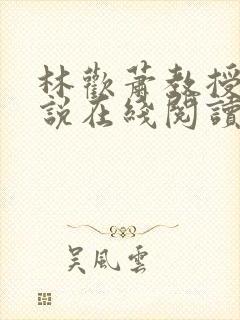 林歡蕭教授
說在綫閱讀
吴風雲